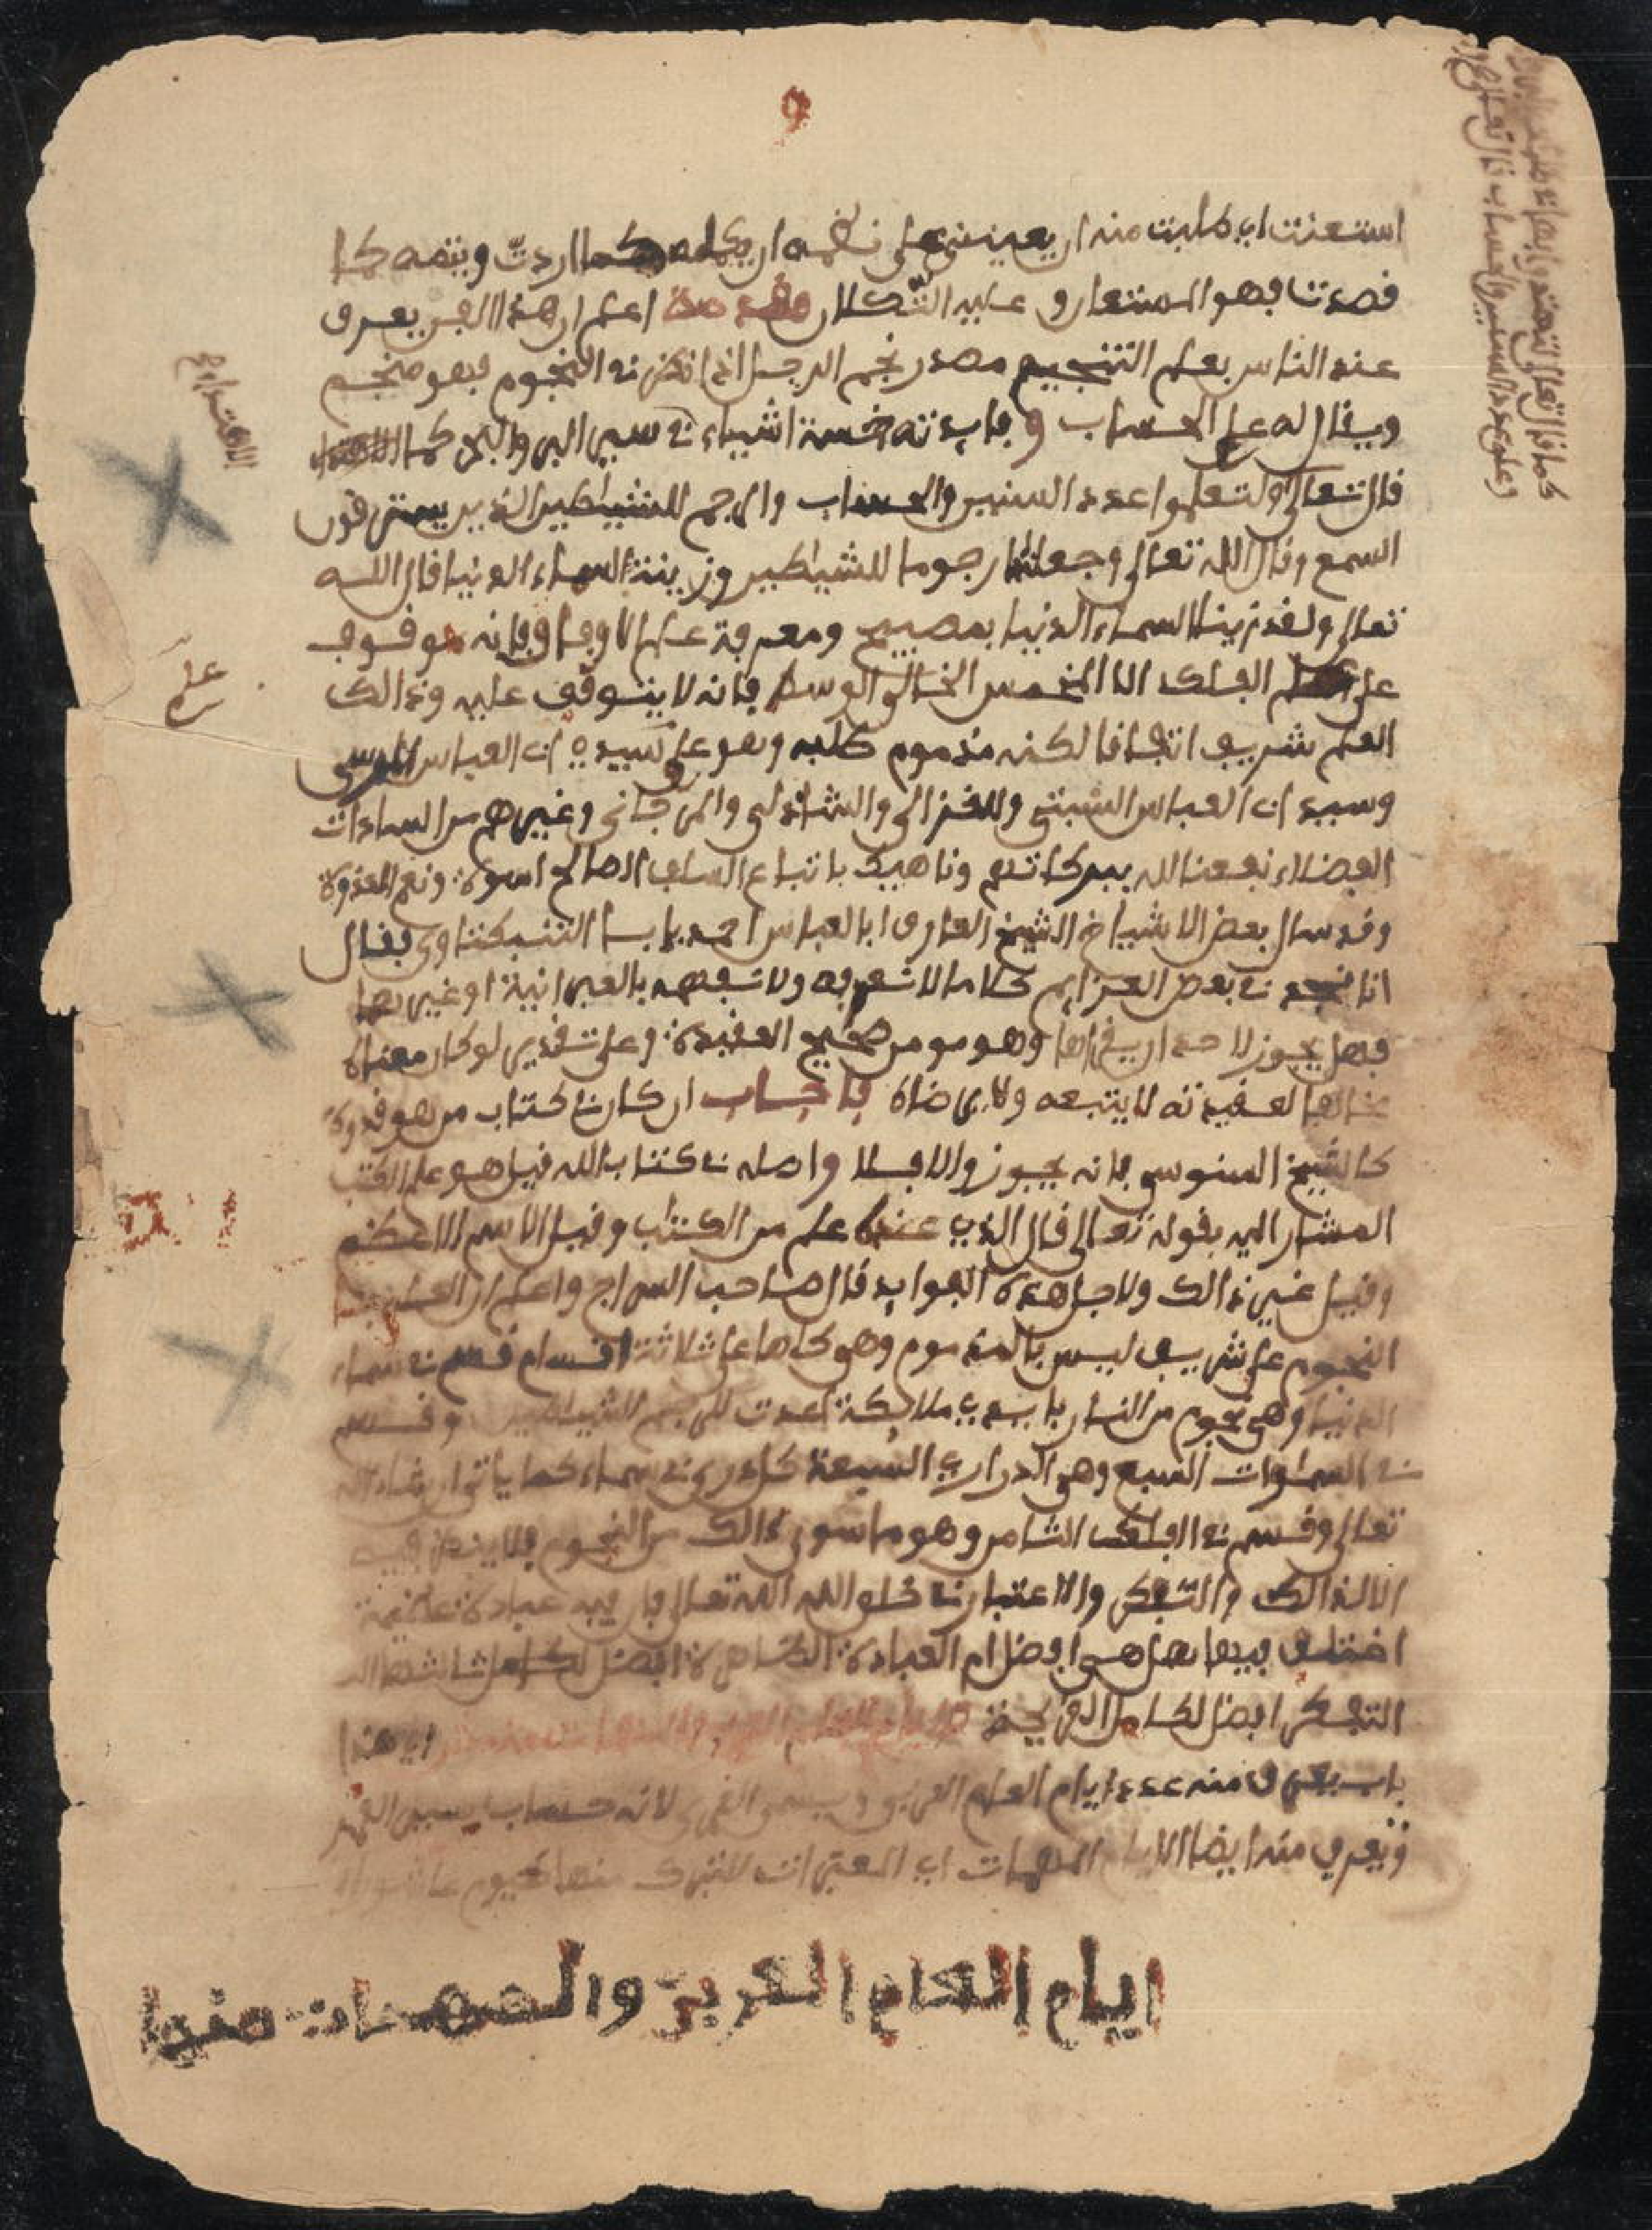 استعنت اي طلبت منه ان يعينني على نظمه ان يكمله كما اردت ويتمه كما
قصدنا فهو المستعان وعليه التكلان مقدمة اعلم ان هذا الفن يعرف
عند الناس بعلم التنجيم مصدر نجم الرجل اذا نظر في النجوم فهو منجم
ويقال له علم الحساب وفايدته خمسة اشياء في سير البر والبحر كما
قال تعالى ولتعلموا عدد السنين والحساب والرجم للشيطين الذين يسترقون
السمع وقال الله تعالى وجعلنها رجوما للشيطين وزينة السماء الدنيا قال الله
تعالى ولقد زينا السماء الدنيا بمصبيح ومعرفة علم الاوقات فانه موقوف
على الفلك الا الخمس الخالي الوسط فانه لا يتوقف عليه وذالك
العلم شريف اتفاقا لكنه مذموم طلبه وهو علم سيدي ابي العباس المرسي
وسيدي ابي العباس السبتي والغزالي والشاذلي والمرجاني وغيرهم من السادات
الفضلاء نفعنا الله ببركاتهم وناهيك باتباع السلف الصالح اسوة ونعم القدوة
وقد سال بعض الاشياخ الشيخ العارف ابا العباس احمد بابا التنبكتاوي فقال
انا نجد في بعض العزايم كلاما لا نعرفه ولا نفهمه بالعبرانية او غيرها
فهل يجوز لاحد ان يقراها وهو مومن صحيح العقيدة وعلى تقدير لو كان معناه
مخالفا لعقيدته لا يتبعه ولا يرضاه فاجاب ان كان في كتاب من هو قدوة
كالشيخ السنوسي فانه يجوز والا فلا واصله في كتاب الله قيل هو علم الكتب
المشار اليه بقوله تعالى قال الذي عنده علم من الكتاب وقيل الاسم الاعظم
وقيل غير ذالك ولاجل هذه الفوايد قال صاحب السراج واعلم ان العلم
النجوم علم شريف ليس بالمذموم وهي كلها على ثلاثة اقسام قسم في سماء
الدنيا وهي نجوم من النار بايدي ملائكة اعدت للرجم للشيطين وقسم
في السماوات السبع وهي الدراري السبعة كل دري في سماء كما ياتي ان شاء الله
تعالى وقسم في الفلك الثامن وهو ما سوى ذالك من النجوم فلا ينظر فيه
الا لذالك والتفكر والاعتبار في خلق الله تعالى فان فيه عبادة عظيمة
اختلف فيها هل هي افضل ام العبادة الظاهرة افضل
التفكر افضل لكامل القريحة اي هذا
باب يعرف منه عدد ايام العام العربي ويسمى القمري لانه حساب بسير القمر
ويعرف منه ايضا الايام المفضلات اي المعتبرات للتبرك منها كيوم عاشوراء
ايام العام العربي والمفضلات منها
كما قال تعالى لتهتدوا بها في ظلمات البر والبحر
وعلم عدد السنين والحساب قال تعالى
الاهتداء صح
علم
صح